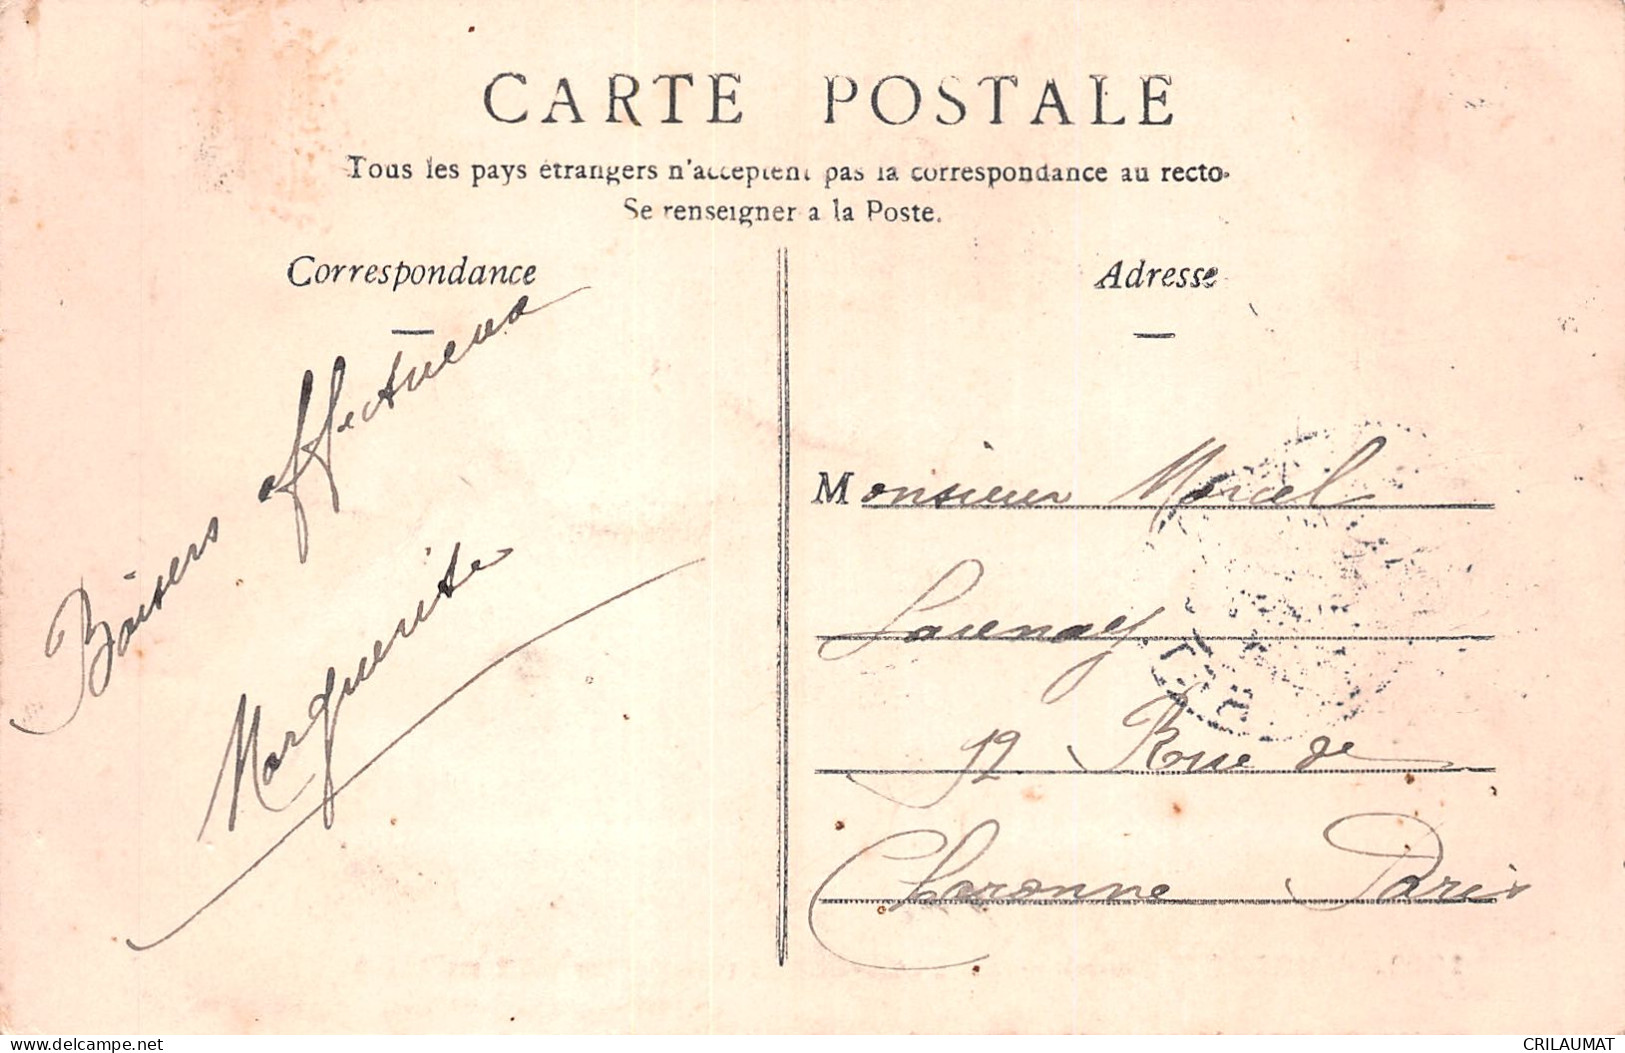 CARTE POSTALE
Tous les pays étrangers n'acceptent pas la correspondance au recto.
Se renseigner a la Poste.
Correspondance
Baisers affectueux
Marguerite
Adresse
Monsieur Marcel
12 Rue de
Charonne Paris
delcampe.net
CRILAUMAT